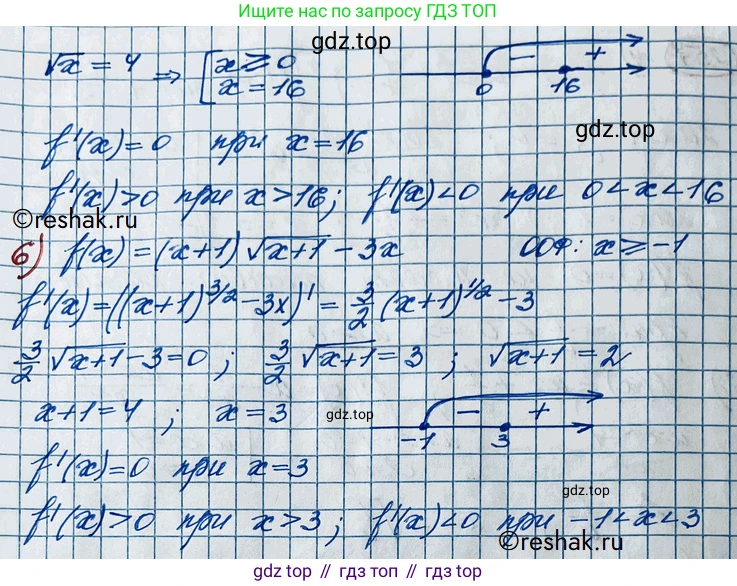 Ищите нас по запросу ГДЗ ТОП
gdz.top
√x = 4 ⇒ [x ≥ 0
x = 16
− +
0 16
gdz.top
f'(x) = 0 при x = 16
f'(x) > 0 при x > 16; f'(x) < 0 при 0 < x < 16
©reshak.ru
б) f(x) = (x+1)√x+1 − 3x ООФ: x ≥ −1
f'(x) = ((x+1)^3/2 − 3x)' = 3/2 (x+1)^1/2 − 3
3/2 √x+1 − 3 = 0; 3/2 √x+1 = 3; √x+1 = 2
x+1 = 4; x = 3
gdz.top
− +
−1 3
f'(x) = 0 при x = 3
gdz.top
f'(x) > 0 при x > 3; f'(x) < 0 при −1 < x < 3
©reshak.ru
gdz.top // гдз топ // gdz.top